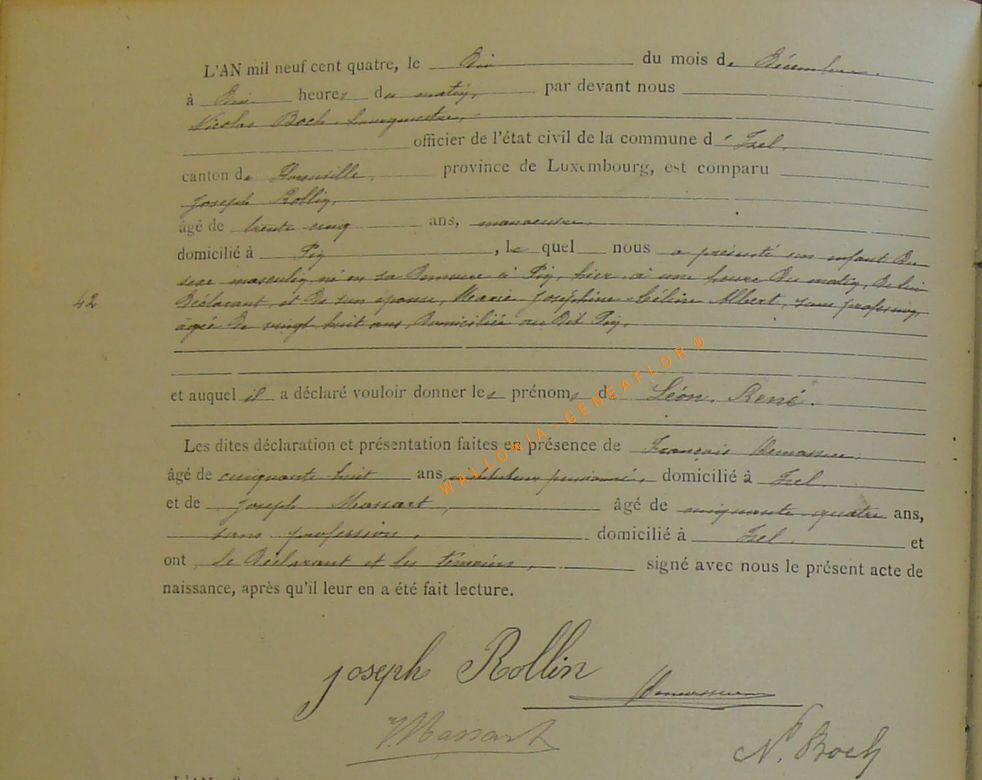 L'AN mil neuf cent quatre, le Dix du mois de Décembre.
à Dix heures du matin, par devant nous
Nicolas Boch, bourgmestre,
officier de l'état civil de la commune d' Izel,
canton de Florenville, province de Luxembourg, est comparu
Joseph Rollin,
âgé de trente cinq ans, manoeuvre,
domicilié à Pin, lequel nous a présenté un enfant du
sexe masculin, né en sa demeure à Pin, hier, à une heure du matin, de lui
42
déclarant, et de son épouse, Marie Joséphine Céline Albert, sans profession,
âgée de vingt huit ans, domiciliée au dit Pin,
et auquel il a déclaré vouloir donner les prénoms de Léon, René.
Les dites déclaration et présentation faites en présence de François
âgé de cinquante huit ans, pensionné, domicilié à Izel,
et de Joseph Massart, âgé de cinquante quatre ans,
sans profession, domicilié à Izel, et
ont le déclarant et les témoins, signé avec nous le présent acte de
naissance, après qu'il leur en a été fait lecture.
Joseph Rollin
J Massart
N. Boch
L'AN
WALLONIA - GENEAFLOR ©